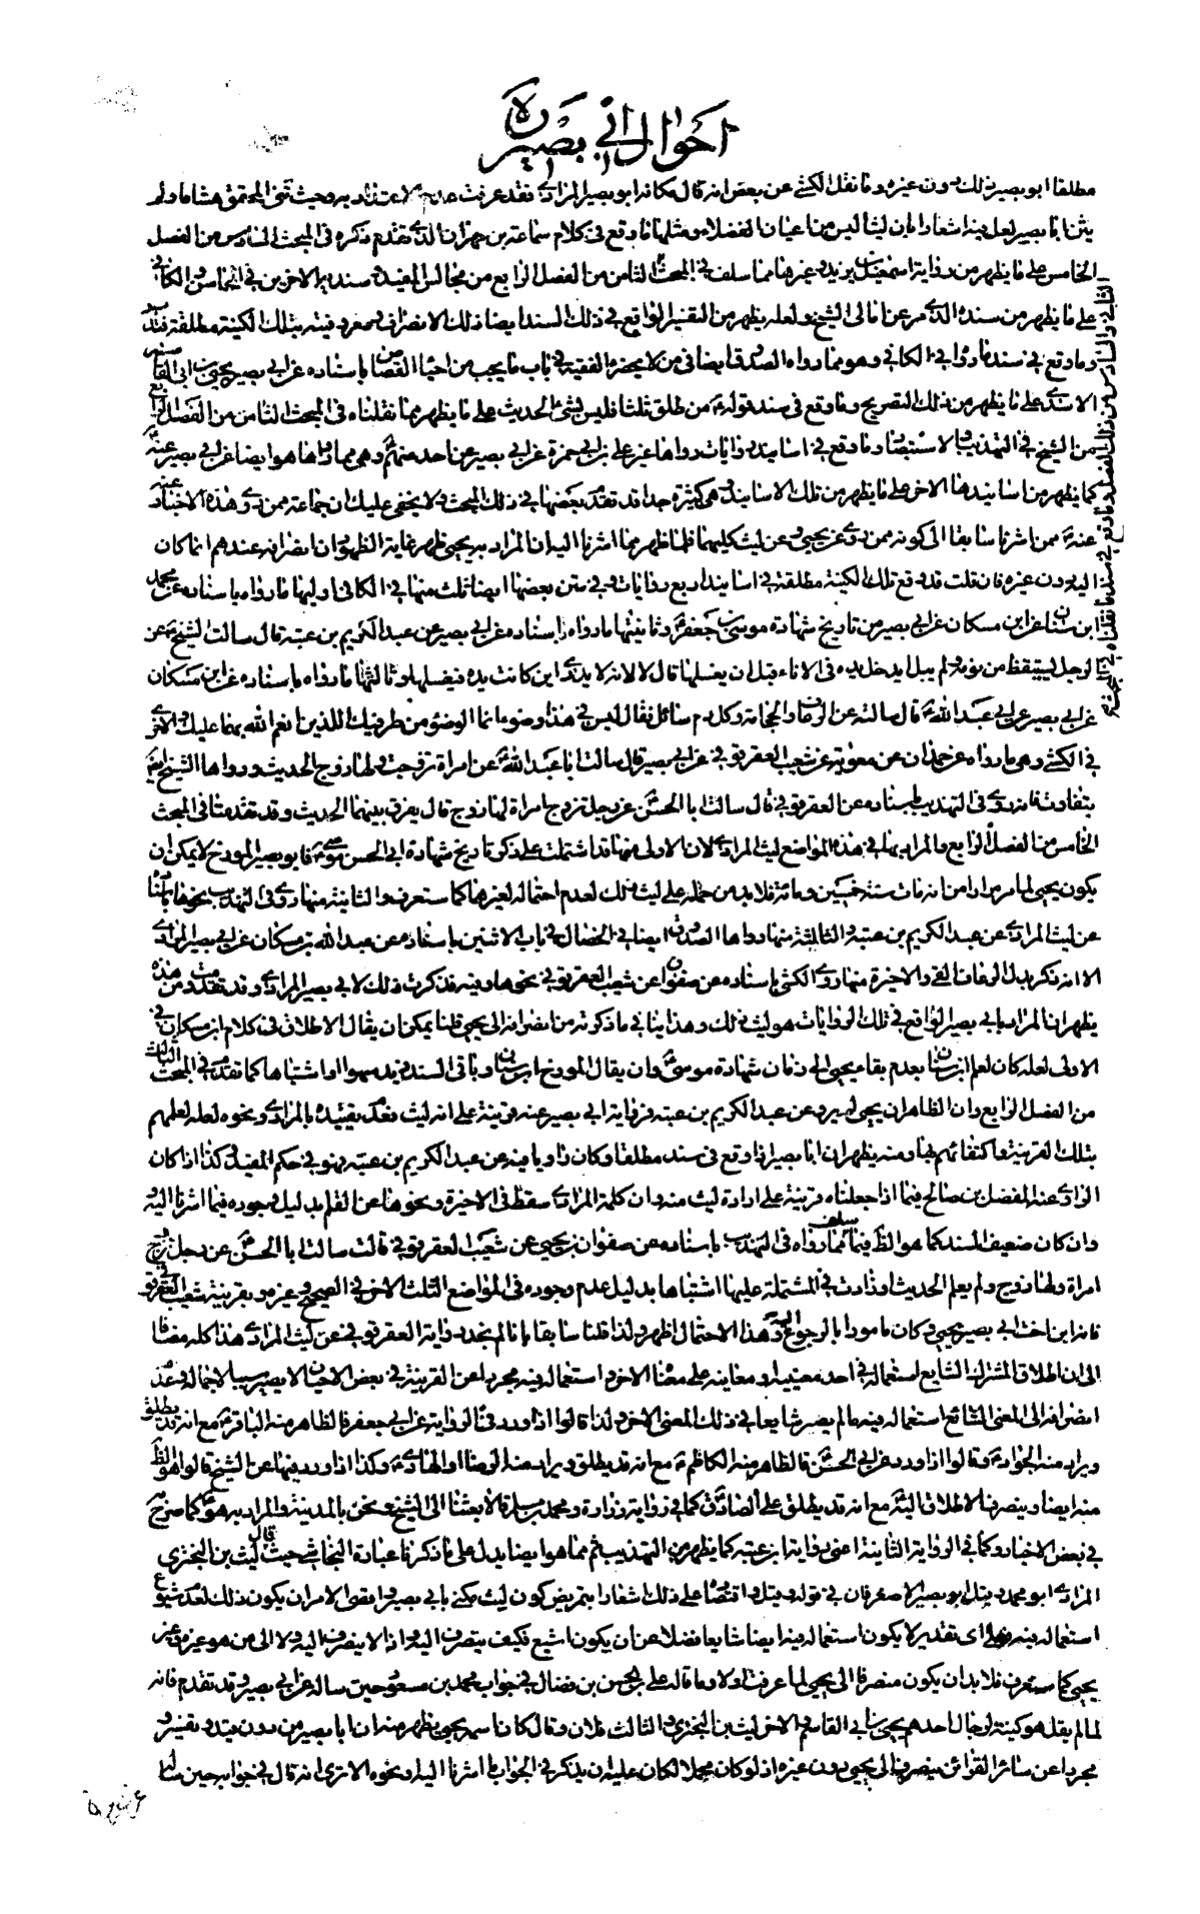 احوال ابي بصير
مطلقا ابو بصير ذلك دون غيره وما نقل الكشي عن بعض انه قال مكانه ابو بصير المرادي فقد عرفت عدم الاعتداد به وحيث نفى المحقق هشاما ولم
الخامس على ما يظهر من رواية اسمعيل بن يزيد وغيرها مما سلف في المبحث الثامن من الفصل الرابع من مجالس المفيد
على ما يظهر من سنده الذي مر عن امالي الشيخ ولعله يظهر من التفسير الواقع في ذلك السند ايضا ذلك الانصراف
وما وقع في سند ما رواه في الكافي وهو مما رواه الصدوق ايضا في من لا يحضره الفقيه في باب ما يجب من احياء القصاص باسناده عن ابي بصير يحيى بن ابي القاسم
الاسدي على ما يظهر من ذلك التصريح وما وقع في سند قوله من طلق ثلثا فليس بشئ الحديث على ما يظهر مما نقلناه في المبحث الثامن من الفصل الرابع
من الشيخ في التهذيب والاستبصار وما وقع في اسانيد روايات رواها عن علي بن ابي حمزة عن ابي بصير عن احدهما وهي مما رواها هو ايضا عن ابي بصير عنه
كما يظهر من اسانيدها الاخر على ما يظهر من تلك الاسانيد وهي كثيرة جدا قد تقدم بعضها في ذلك المبحث ولا يخفى عليك ان جماعة ممن روى هذه الاخبار عنه
عنه ممن اشرنا سابقا الى كونه ممن روى عن يحيى وعن ليث كليهما فلما ظهر مما اشرنا اليه ان المراد به يحيى ظهر غاية الظهور ان انصرافه عندهم انما كان
اليه دون غيره فان قلت قد وقع تلك الكنية مطلقة في اسانيد اربع روايات وفي متن بعضها ايضا ثلث منها في الكافي اوليها ما رواه باسناده عن محمد
ابن سنان عن ابن مسكان عن ابي بصير من تاريخ شهادة موسى بن جعفر وثانيتها ما رواه باسناده عن ابي بصير عن عبد الكريم بن عتبة قال سالت الشيخ عن
الرجل يستيقظ من نومه ولم يبل ايدخل يده في الاناء قبل ان يغسلها قال لا لانه لا يدري اين كانت يده فيغسلها وثالثتها ما رواه باسناده عن ابن مسكان
عن ابي بصير عن ابي عبد الله قال سالته عن الرعاف والحجامة وكل دم سائل فقال ليس في هذا وضوء انما الوضوء من طرفيك اللذين انعم الله بهما عليك والاخرى
في الكشي وهي ما رواه عن حمدان عن معوية عن شعيب العقرقوفي عن ابي بصير قال سالت ابا عبد الله عن امراة تزوجت ولها زوج الحديث ورواها الشيخ ايضا
بتفاوت ما روى في التهذيب باسناده عن العقرقوفي قال سالت ابا الحسن عن رجل تزوج امراة لها زوج قال يفرق بينهما الحديث وقد تقدمتا في المبحث
الخامس من الفصل الرابع والمراد بها في هذه المواضع ليث المرادي لان الاولى منها قد اشتملت على ذكر تاريخ شهادة ابي الحسن موسى فابو بصير المورخ لا يمكن ان
يكون يحيى لما مر مرارا من انه مات سنة خمسين ومائة فلا بد من حمله على ليث ذلك لعدم احتماله لغيرهما كما ستعرف والثانية منها روى في التهذيب نحوها
عن ليث المرادي عن عبد الكريم بن عتبة والثالثة منها رواها الصدوق ايضا في الخصال في باب الاثنين باسناده عن عبد الله بن مسكان عن ابي بصير المرادي
الا انه ذكر بدل الرعاف القئ والاخيرة منها روى الكشي باسناده عن صفوان عن شعيب العقرقوفي نحوها وفيه فذكرت ذلك لابي بصير المرادي وقد تقدمت من هذه
يظهر ان المراد بابي بصير الواقع في تلك الروايات هو ليث ذلك وهذا ينافي ما ذكرته من انصرافه الى يحيى قلنا يمكن ان يقال الاطلاق في كلام ابن مسكان في
الاولى لعله كان لعلم ابن سنان بعدم بقاء يحيى الى زمان شهادة موسى وان يقال المورخ ابن سنان وباقي السند زيد سهوا او اشتباها كما تقدم في المبحث الثالث
من الفصل الرابع وان الظاهر ان يحيى لم يرو عن عبد الكريم بن عتبة فرواية ابي بصير عنه قرينة على انه ليث فعدم تقييده بالمرادي ونحوه لعله لعلمهم
بتلك القرينة واكتفائهم بها ومنه يظهر ان ابا بصير اذا وقع في سند مطلقا وكان راويا فيه عن عبد الكريم بن عتبة فهو في حكم المقيد وكذا اذا كان
الراوي عنه المفضل بن صالح فيما اذا جعلناه قرينة على ارادة ليث منه وان كلمة المرادي سقطت في الاخيرة ونحوها عن القلم بدليل وجوده فيما اشرنا اليه
وان كان ضعيف السند كما هو الظاهر فيما سلف مما رواه في التهذيب باسناده عن صفوان بن يحيى عن شعيب العقرقوفي قالت سالت ابا الحسن عن رجل تزوج
امراة ولها زوج ولم يعلم الحديث او زادت في المشتملة عليها اشتباها بدليل عدم وجوده في المواضع الثلث الاخر في الصحيح وغيره وبقرينة شعيب العقرقوفي
فانه ابن اخت ابي بصير يحيى وكان مامورا بالرجوع اليه وهذا الاحتمال اظهر ولذا قلنا سابقا بانا لم نجد رواية العقرقوفي عن ليث المرادي هذا كله مضافا
الى ان اطلاق المشترك الشايع استعماله في احد معنييه او معانيه على معناه الاخر واستعماله فيه مجردا عن القرينة في بعض الاحيان لا يصير سببا لاجماله وعدم
انصرافه الى المعنى الشائع استعماله فيه ما لم يصر شايعا في ذلك المعنى الاخر ولذا قالوا اذا ورد في الرواية عن ابي جعفر فالظاهر منه الباقر مع انه قد يطلق
ويراد منه الجواد وقالوا اذا ورد عن ابي الحسن فالظاهر منه الكاظم مع انه قد يطلق ويراد منه الرضا او الهادي وكذا اذا ورد فيها عن الشيخ قالوا هو الظاهر
منه ايضا وينصرف الاطلاق اليه مع انه قد يطلق على الصادق كما في رواية زرارة ومحمد بن مسلم قالا بعثنا الى الشيخ ونحن بالمدينة والمراد به هو كما صرح به
في بعض الاخبار وكما في الرواية الثانية اعني رواية ابن عتبة كما يظهر من التهذيب ثم مما هو ايضا يدل على ما ذكرنا عبارة النجاشي حيث قال ليث بن البختري
المرادي ابو محمد وقيل ابو بصير الاصغر فان في قوله وقيل واقتصاره على ذلك اشعارا بتمريض كون ليث مكنى بابي بصير واقصى الامر ان يكون ذلك لعدم شيوع
استعماله فيه وعلى اي تقدير لا يكون استعماله فيه ايضا شايعا فضلا عن ان يكون اشيع فكيف ينصرف اليه واذا لا ينصرف اليه ولا الى من هو غيره وغير
يحيى كما ستعرف فلا بد ان يكون منصرفا الى يحيى لما عرفت اولا وما قاله علي بن الحسن بن فضال في جواب محمد بن مسعود حين ساله عن ابي بصير وقد تقدم فانه
لما لم يقل هو كنية لرجال احدهم يحيى بن ابي القاسم والاخر ليث بن البختري والثالث فلان وقال كان اسمه يحيى يظهر منه ان ابا بصير من دون قيد وتفسير
مجردا عن سائر القرائن ينصرف الى يحيى دون غيره اذ لو كان مجملا لكان عليه ان يذكر في الجواب ما اشرنا اليه او نحوه الا ترى انه قال في جوابه حين ساله